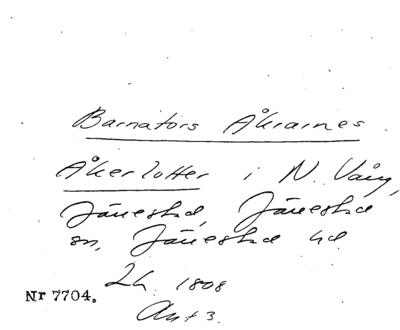 Barnators Åkrarnes
Åkerlotter i N. Vång,
Jänestad, Jänestad
sn, Jänestad hd.
Lh. 1808
Nr 7704.
Akt 3.